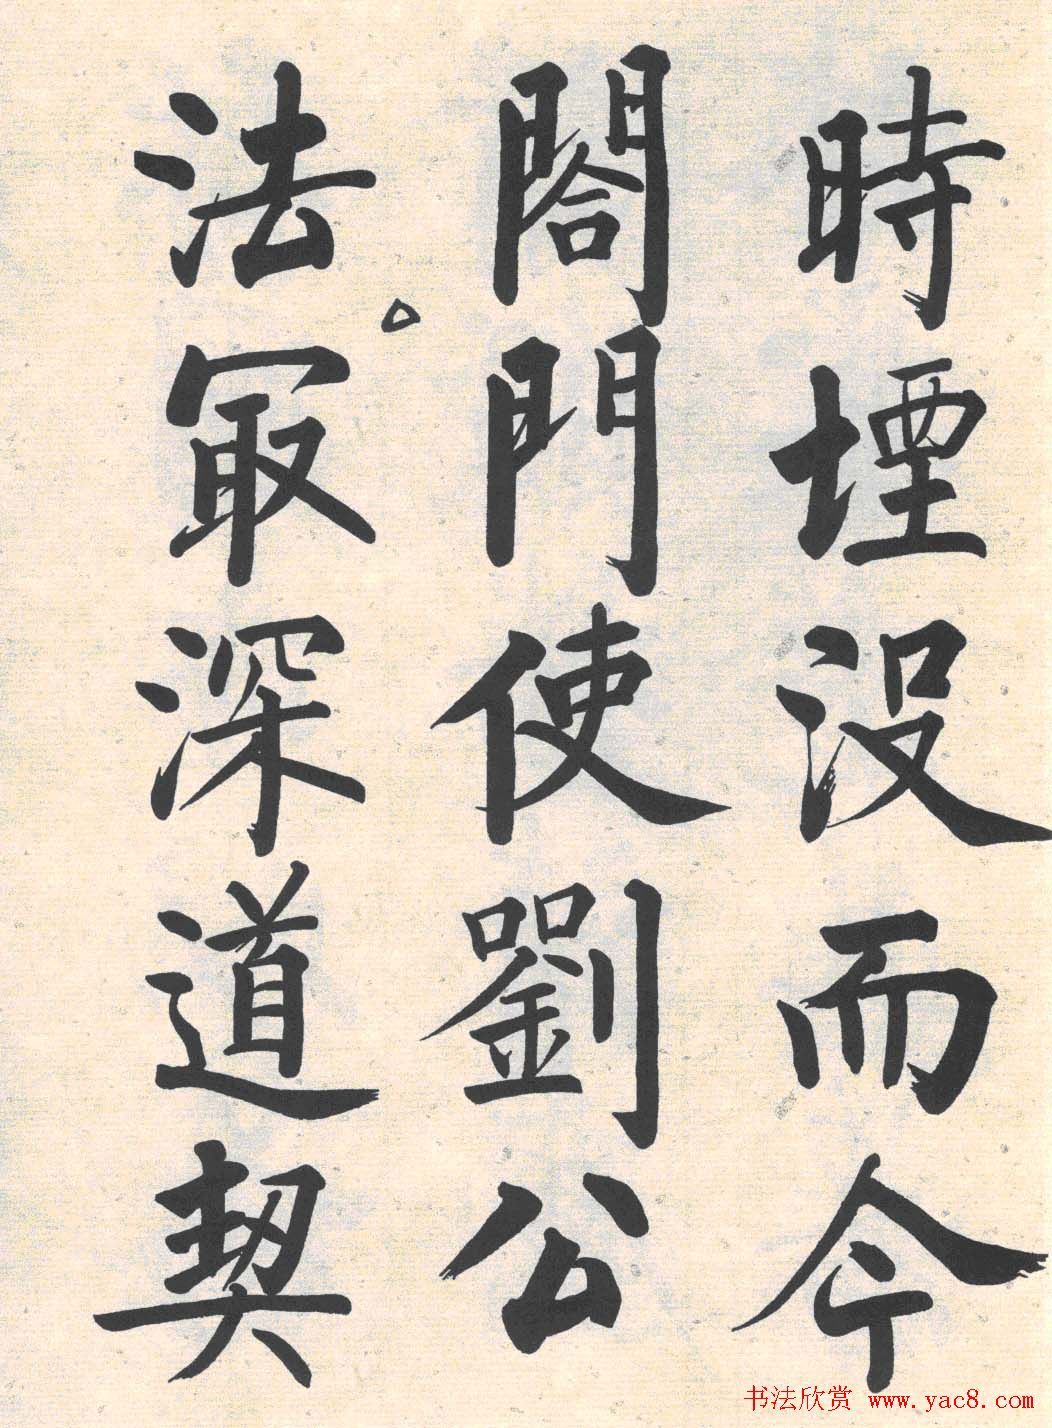 時堙没而今
閤門使劉公
法㝡深道契
书法欣赏 www.yac8.com